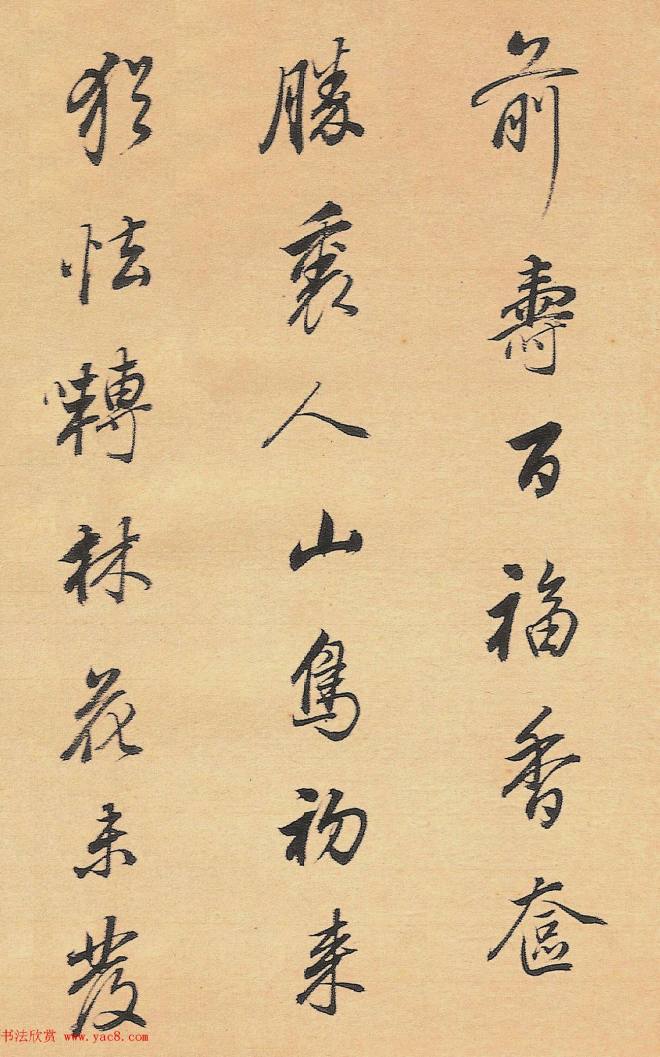 前壽百福香奩
勝裏人山鳥初来
猶怯轉林花未發
书法欣赏 www.yac8.com